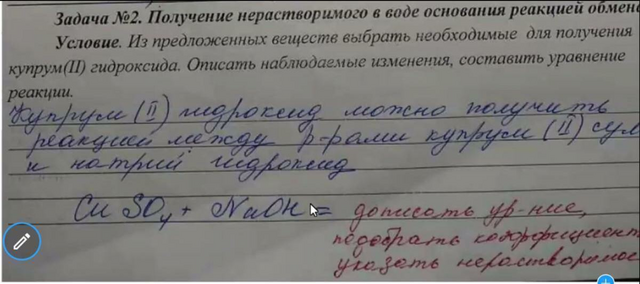 Задача №2. Получение нерастворимого в воде основания реакцией обмен
Условие. Из предложенных веществ выбрать необходимые для получения
купрум(II) гидроксида. Описать наблюдаемые изменения, составить уравнение
реакции.
Купрум (II) гидроксид можно получить
реакцией между р-рами купрум (II) сул
и натрий гидроксид
Cu SO4 + NaOH = дописать ур-ние,
подобрать коэффициент
указать нерастворимос